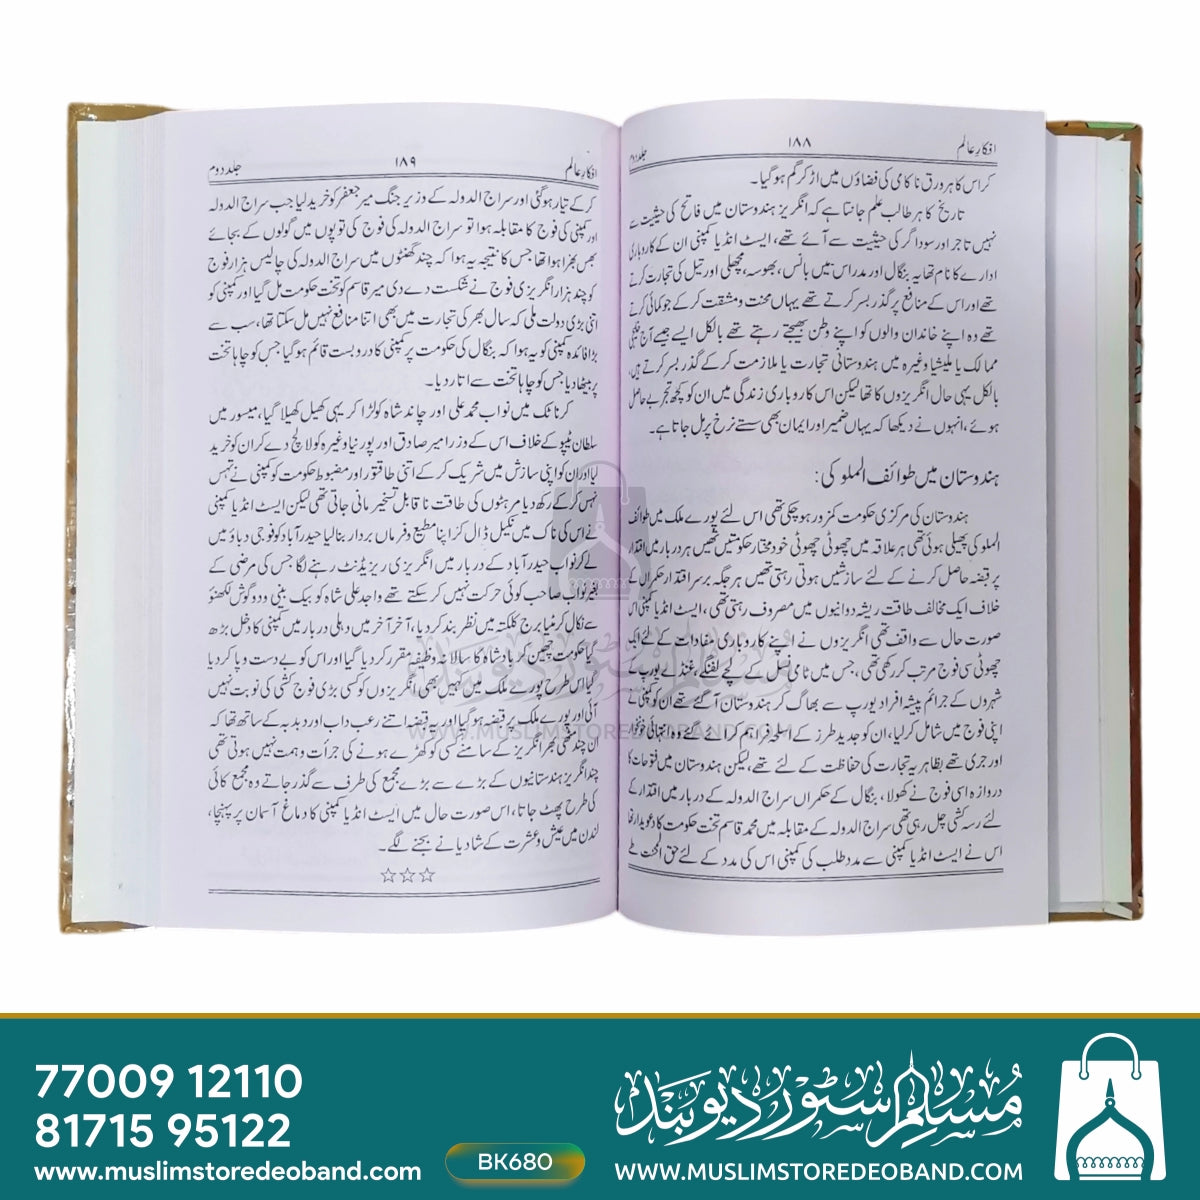 افکار عالم
۱۸۸
جلد دوم
کر اس کا ہر ورق ناکامی کی فضاؤں میں اڑ کر گم ہو گیا۔
تاریخ کا ہر طالب علم جانتا ہے کہ انگریز ہندوستان میں فاتح کی حیثیت سے
نہیں تاجر اور سوداگر کی حیثیت سے آئے تھے، ایسٹ انڈیا کمپنی ان کے کاروباری
ادارے کا نام تھا یہ بنگال اور مدراس میں بانس، بھوسہ، مچھلی اور تیل کی تجارت کرتے
تھے اور اس کے منافع پر گذر بسر کرتے تھے یہاں محنت و مشقت کر کے جو کمائی کرتے
تھے وہ اپنے خاندان والوں کو اپنے وطن بھیجتے رہتے تھے بالکل ایسے جیسے آج خلیجی
ممالک یا ملیشیا وغیرہ میں ہندوستانی تجارت یا ملازمت کر کے گذر بسر کرتے ہیں،
بالکل یہی حال انگریزوں کا تھا لیکن اس کاروباری زندگی میں ان کو کچھ تجربے حاصل
ہوئے، انہوں نے دیکھا کہ یہاں ضمیر اور ایمان بھی سستے نرخ پر مل جاتا ہے۔
ہندوستان میں طوائف الملوکی:
ہندوستان کی مرکزی حکومت کمزور ہو چکی تھی اس لئے پورے ملک میں طوائف
الملوکی پھیلی ہوئی تھی ہر علاقہ میں چھوٹی چھوٹی خود مختار حکومتیں تھیں ہر دربار میں اقتدار
پر قبضہ حاصل کرنے کے لئے سازشیں ہوتی رہتی تھیں ہر جگہ برسر اقتدار حکمراں کے
خلاف ایک مخالف طاقت ریشہ دوانیوں میں مصروف رہتی تھی، ایسٹ انڈیا کمپنی اس
صورت حال سے واقف تھی انگریزوں نے اپنے کاروباری مفادات کے لئے ایک
چھوٹی سی فوج مرتب کر رکھی تھی، جس میں ٹامی نسل کے لچے لفنگے، غنڈے یورپ کے
شہروں کے جرائم پیشہ افراد یورپ سے بھاگ کر ہندوستان آ گئے تھے ان کو کمپنی نے
اپنی فوج میں شامل کر لیا، ان کو جدید طرز کے اسلحہ فراہم کئے گئے وہ انتہائی خونخوار
اور جری تھے بظاہر یہ تجارت کی حفاظت کے لئے تھے، لیکن ہندوستان میں فتوحات کا
دروازہ اسی فوج نے کھولا، بنگال کے حکمراں سراج الدولہ کے دربار میں اقتدار کے
لئے رسہ کشی چل رہی تھی سراج الدولہ کے مقابلہ میں محمد قاسم تخت حکومت کا دعویدار تھا
اس نے ایسٹ انڈیا کمپنی سے مدد طلب کی کمپنی اس کی مدد کے لئے حق المحنت طے
افکار عالم
۱۸۹
جلد دوم
کر کے تیار ہو گئی اور سراج الدولہ کے وزیر جنگ میر جعفر کو خرید لیا جب سراج الدولہ
اور کمپنی کی فوج کا مقابلہ ہوا تو سراج الدولہ کی فوج کی توپوں میں گولوں کے بجائے
بھس بھرا ہوا تھا جس کا نتیجہ یہ ہوا کہ چند گھنٹوں میں سراج الدولہ کی چالیس ہزار فوج
کو چند ہزار انگریزی فوج نے شکست دے دی میر قاسم کو تخت حکومت مل گیا اور کمپنی کو
اتنی بڑی دولت ملی کہ سال بھر کی تجارت میں بھی اتنا منافع نہیں مل سکتا تھا، سب سے
بڑا فائدہ کمپنی کو یہ ہوا کہ بنگال کی حکومت پر کمپنی کا در و بست قائم ہو گیا جس کو چاہا تخت
پر بیٹھا دیا جس کو چاہا تخت سے اتار دیا۔
کرناٹک میں نواب محمد علی اور چاند شاہ کو لڑا کر یہی کھیل کھیلا گیا، میسور میں
سلطان ٹیپو کے خلاف اس کے وزرا میر صادق اور پورنیا وغیرہ کو لالچ دے کر ان کو خرید
لیا اور ان کو اپنی سازش میں شریک کر کے اتنی طاقتور اور مضبوط حکومت کو کمپنی نے تہس
نہس کر کے رکھ دیا مرہٹوں کی طاقت ناقابل تسخیر مانی جاتی تھی لیکن ایسٹ انڈیا کمپنی
نے اس کی ناک میں نکیل ڈال کر اپنا مطیع و فرماں بردار بنا لیا حیدرآباد کو فوجی دباؤ میں
لے کر نواب حیدرآباد کے دربار میں انگریزی ریزیڈنٹ رہنے لگا جس کی مرضی کے
بغیر نواب صاحب کوئی حرکت نہیں کر سکتے تھے واجد علی شاہ کو بیک بینی و دو گوش لکھنؤ
سے نکال کر مٹیا برج کلکتہ میں نظر بند کر دیا، آخر آخر میں دہلی دربار میں کمپنی کا دخل بڑھ
گیا حکومت چھین کر بادشاہ کا سالانہ وظیفہ مقرر کر دیا گیا اور اس کو بے دست و پا کر دیا
گیا اس طرح پورے ملک میں کہیں بھی انگریزوں کو کسی بڑی فوج کشی کی نوبت نہیں
آئی اور پورے ملک پر قبضہ ہو گیا اور یہ قبضہ اتنے رعب داب اور دبدبہ کے ساتھ تھا کہ
ان چند بھر انگریز کے سامنے کسی کو کھڑے ہونے کی جرأت و ہمت نہیں ہوتی تھی
چند انگریز ہندوستانیوں کے بڑے سے بڑے مجمع کی طرف سے گذر جاتے وہ مجمع کائی
کی طرح پھٹ جاتا، اس صورت حال میں ایسٹ انڈیا کمپنی کا دماغ آسمان پر پہنچا،
لندن میں عیش و عشرت کے شادیانے بجنے لگے۔
☆☆☆
مسلم سٹور دیوبند
WWW.MUSLIMSTOREDEOBAND.COM
77009 12110
81715 95122
www.muslimstoredeoband.com
BK680
مسلم سٹور دیوبند
WWW.MUSLIMSTOREDEOBAND.COM